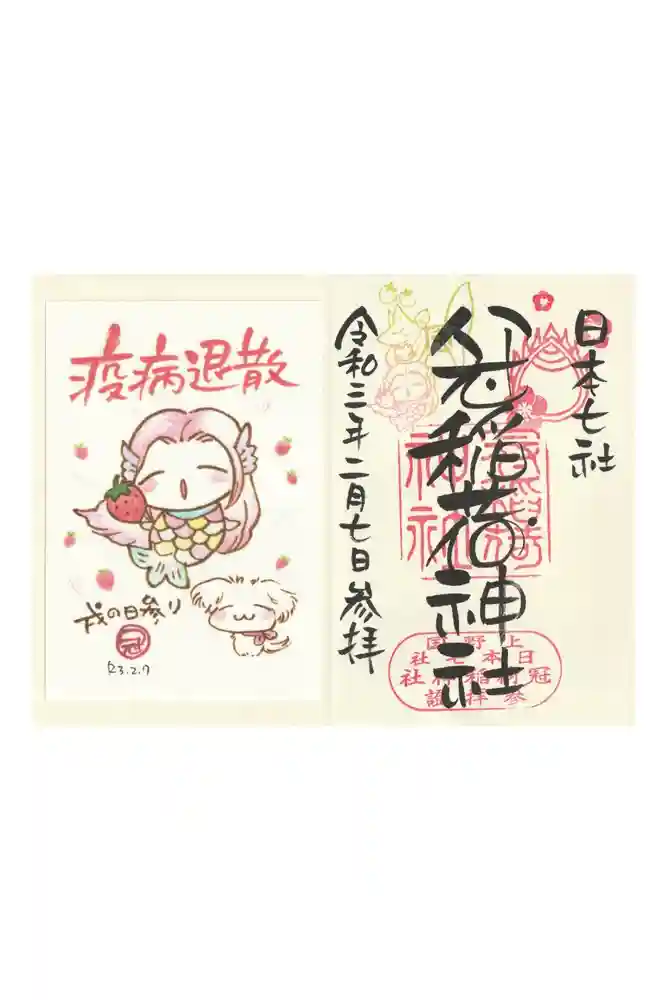 疫病退散
戌の日参り
冠
R3.2.7
日本七社
冠稲荷神社
令和三年二月七日参拝
上野国
日本七社
冠稲荷神社
参拝證